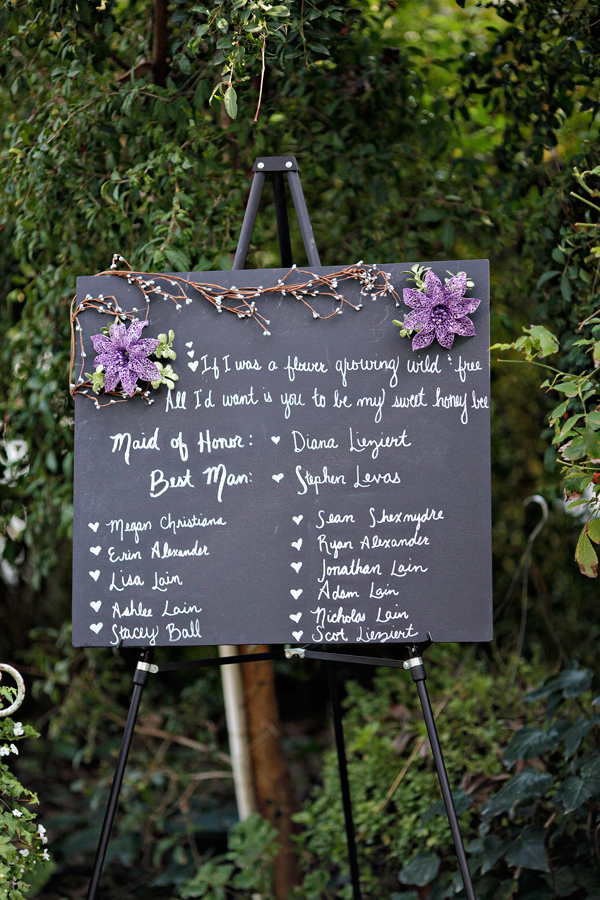 If I was a flower growing wild & free
All I'd want is you to be my sweet honey bee
Maid of Honor: Diana Lieziert
Best Man: Stephen Levas
Megan Christiana
Erin Alexander
Lisa Lain
Ashlee Lain
Stacey Ball
Sean Shexnydre
Ryan Alexander
Jonathan Lain
Adam Lain
Nicholas Lain
Scot Lieziert